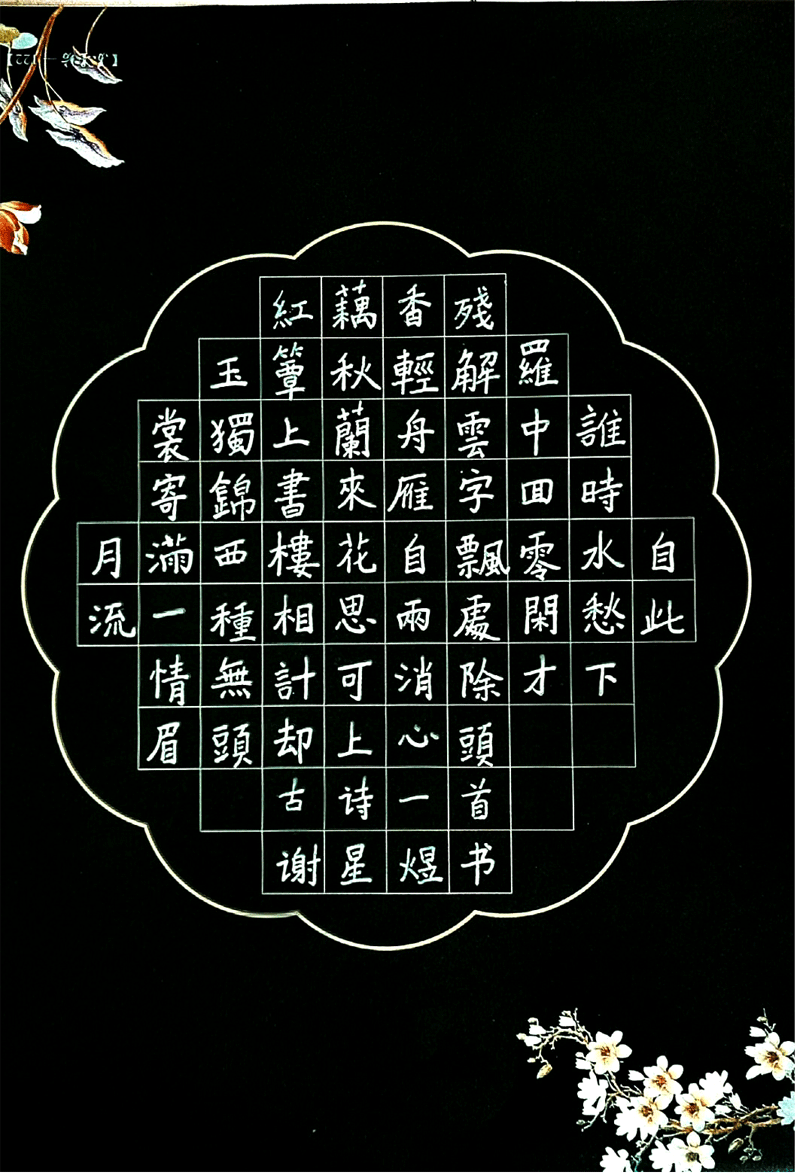 紅藕香殘
玉簟秋輕解羅
裳獨上蘭舟雲中誰
寄錦書來雁字回時
月滿西樓花自飄零水自
流一種相思兩處閑愁此
情無計可消除才下
眉頭却上心頭
古诗一首
谢星煜书